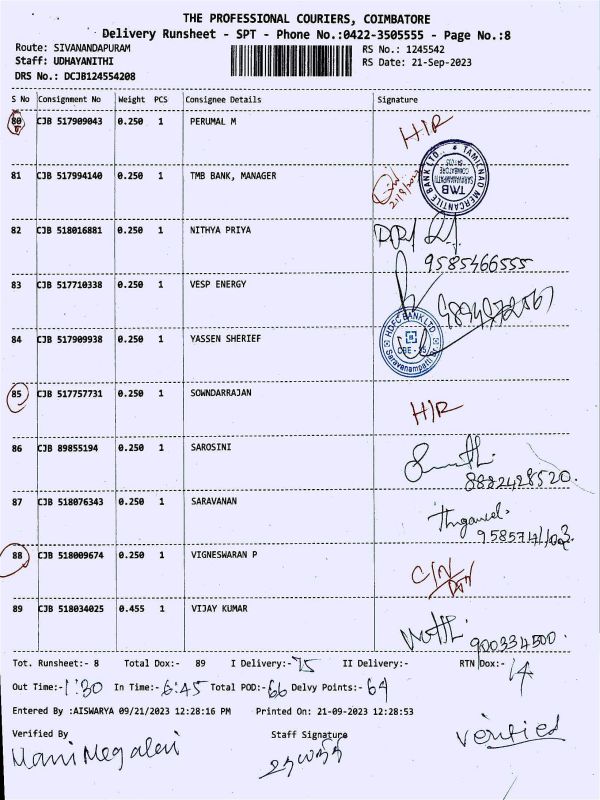 THE PROFESSIONAL COURIERS, COIMBATORE
Delivery Runsheet - SPT - Phone No.:0422-3505555 - Page No.:8
Route: SIVANANDAPURAM RS No.: 1245542
Staff: UDHAYANITHI RS Date: 21-Sep-2023
DRS No.: DCJB124554208
S No Consignment No Weight PCS Consignee Details Signature
80 CJB 517909043 0.250 1 PERUMAL M H/R
81 CJB 517994140 0.250 1 TMB BANK, MANAGER
TAMILNAD MERCANTILE BANK LTD.,
TMB
COIMBATORE
82 CJB 518016881 0.250 1 NITHYA PRIYA
9585466555
83 CJB 517710338 0.250 1 VESP ENERGY
84 CJB 517909938 0.250 1 YASSEN SHERIEF
HDFC BANK LTD
Saravanampatti
85 CJB 517757731 0.250 1 SOWNDARRAJAN H/R
86 CJB 89855194 0.250 1 SAROSINI
8882428520.
87 CJB 518076343 0.250 1 SARAVANAN
88 CJB 518009674 0.250 1 VIGNESWARAN P
89 CJB 518034025 0.455 1 VIJAY KUMAR
900334500.
Tot. Runsheet:- 8 Total Dox:- 89 I Delivery:- 75 II Delivery:- RTN Dox:- 14
Out Time:- 1:30 In Time:- 6:45 Total POD:- 66 Delvy Points:- 64
Entered By :AISWARYA 09/21/2023 12:28:16 PM Printed On: 21-09-2023 12:28:53
Verified By Staff Signature verified
Mani Megalai உதயநிதி